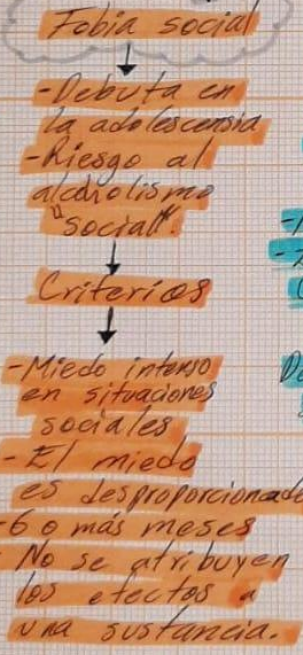 Fobia social
- Debuta en
la adolescensia
- Riesgo al
alcoholismo
"social".
Criterios
- Miedo intenso
en situaciones
sociales
- El miedo
es desproporcionado
- 6 o más meses
- No se atribuyen
los efectos a
una sustancia.